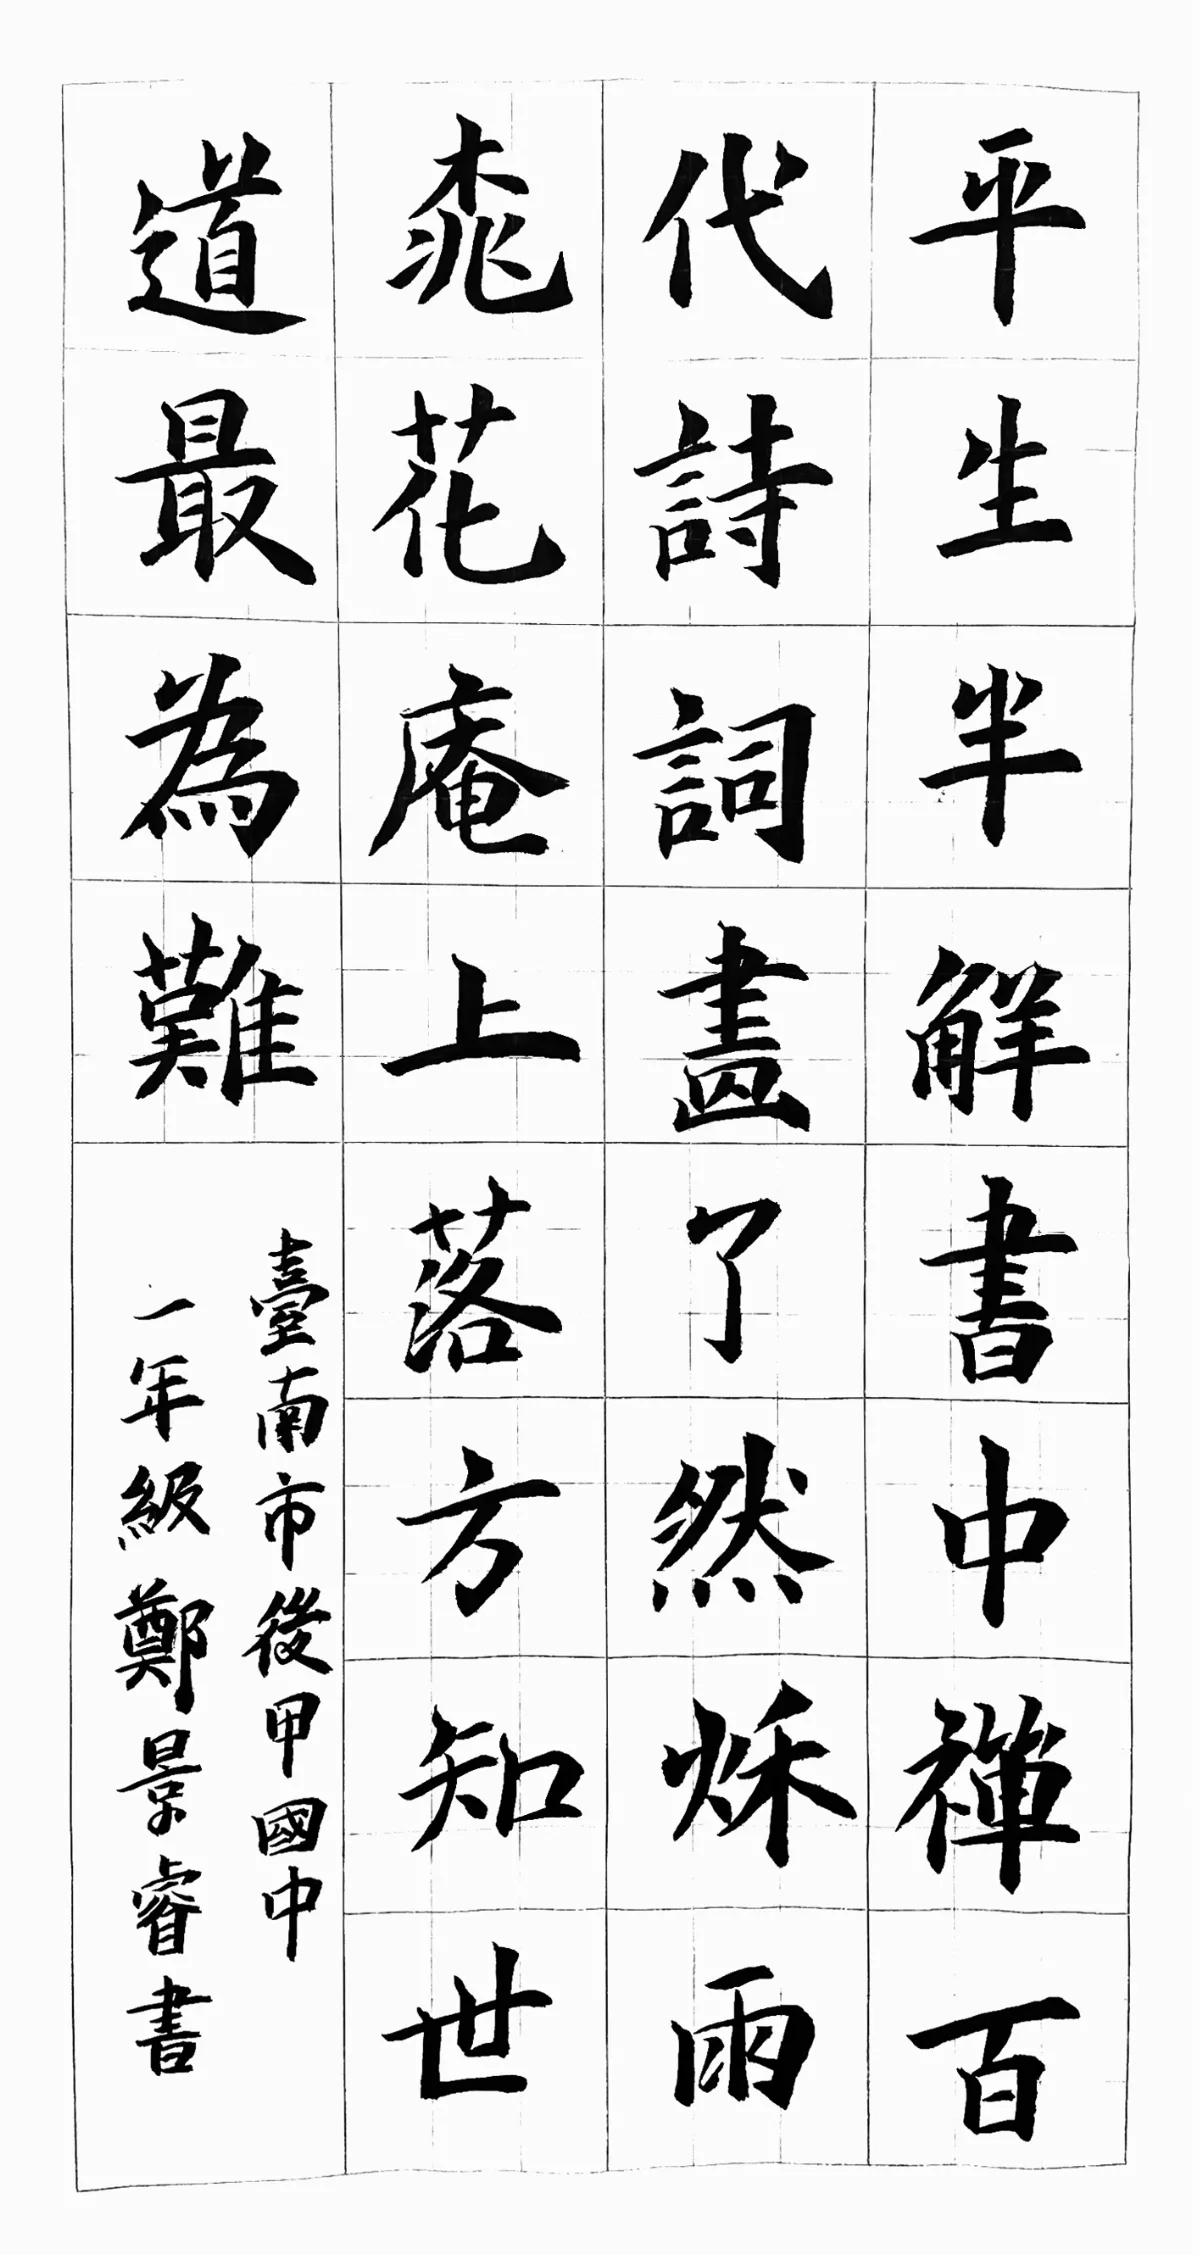 平生半解書中禪百
代詩詞盡了然秌雨
桃花庵上落方知世
道最為難
臺南市後甲國中
一年級鄭景睿書